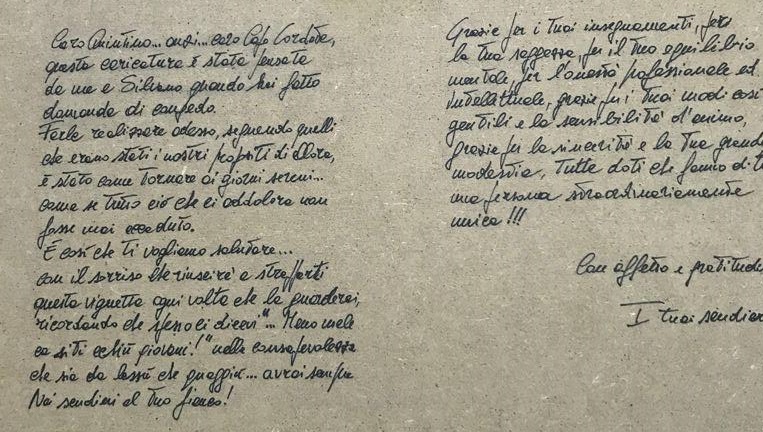 Caro Quintino... anzi... caro Capo Cordata,
questa caricatura è stata pensata
da me e Silvano quando hai fatto
domanda di congedo.
Farla realizzare adesso, seguendo quelli
che erano stati i nostri propositi di allora,
è stato come tornare ai giorni sereni...
come se tutto ciò che ci addolora non
fosse mai accaduto.
È così che ti vogliamo salutare...
con il sorriso che riuscirà a strapparti
questa vignetta ogni volta che la guarderai,
ricordando che spesso ci dicevi "... Meno male
ca siti cchiù giovani!" nella consapevolezza
che sia da lassù che quaggiù... avrai sempre
Noi sendieri al tuo fianco!
Grazie per i tuoi insegnamenti, per
la tua saggezza, per il tuo equilibrio
mentale, per l'onestà professionale ed
intellettuale, grazie per i tuoi modi così
gentili e la sensibilità d'animo,
grazie per la sincerità e la tua grande
modestia, tutte doti che fanno di t
una persona straordinariamente
unica!!!
Con affetto e gratitudi
I tuoi sendier